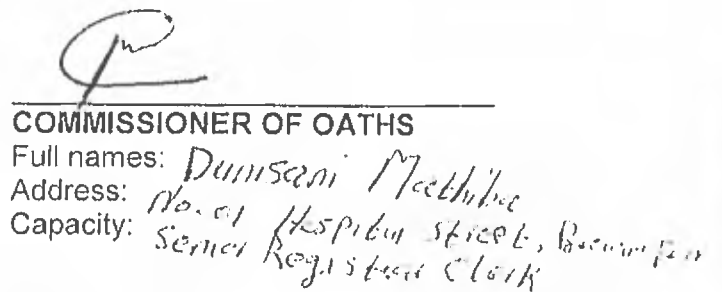 COMMISSIONER OF OATHS
Full names: Dumisani
Address: No. 01 Hospital Street,
Capacity: Senior Registrar Clerk